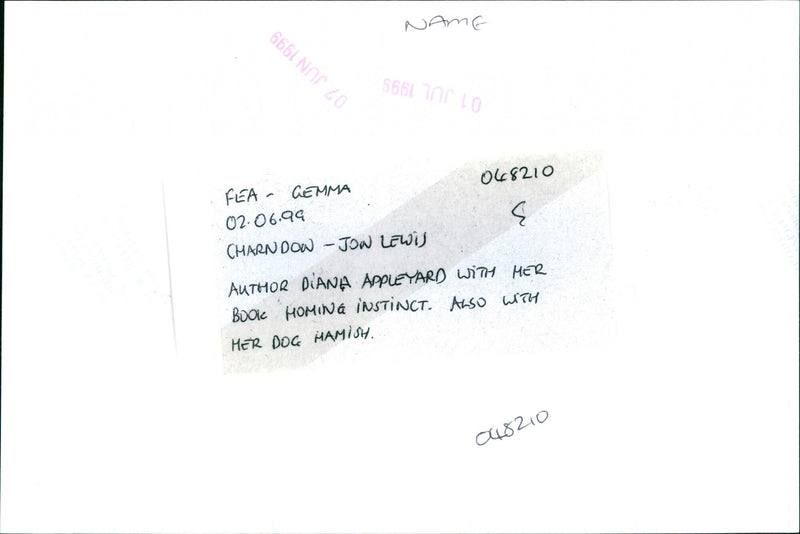 NAME
07 JUN 1999
01 JUL 1999
FEA - GEMMA 048210
02.06.99
CHARNDON - JON LEWIS
AUTHOR DIANA APPLEYARD WITH HER
BOOK HOMING INSTINCT. ALSO WITH
HER DOG HAMISH.
048210